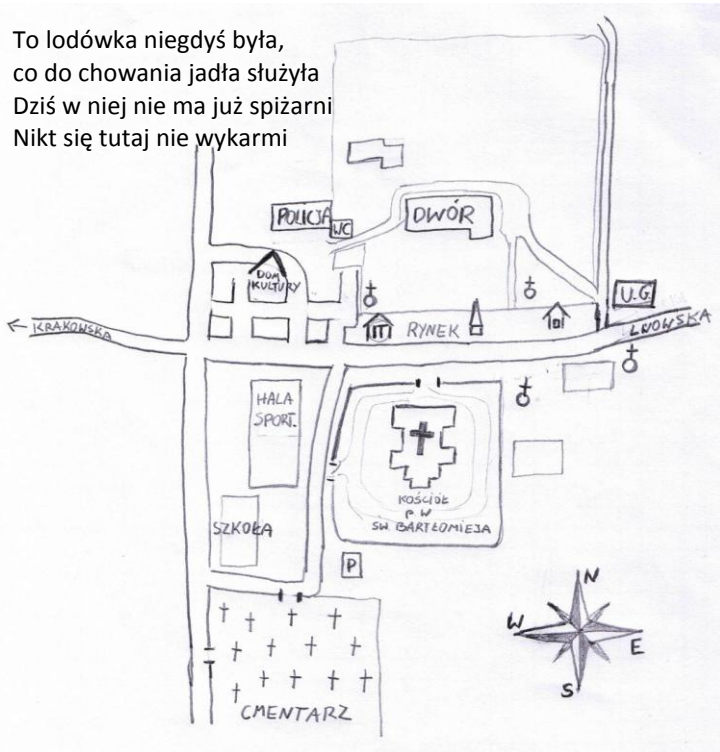 To lodówka niegdyś była,
co do chowania jadła służyła
Dziś w niej nie ma już spiżarni
Nikt się tutaj nie wykarmi
POLICJA
WC
DWÓR
DOM
KULTURY
U.G.
← KRAKOWSKA
IT
RYNEK
LWOWSKA
HALA
SPORT.
KOŚCIÓŁ
P.W
ŚW. BARTŁOMIEJA
SZKOŁA
P
N
W
E
S
CMENTARZ